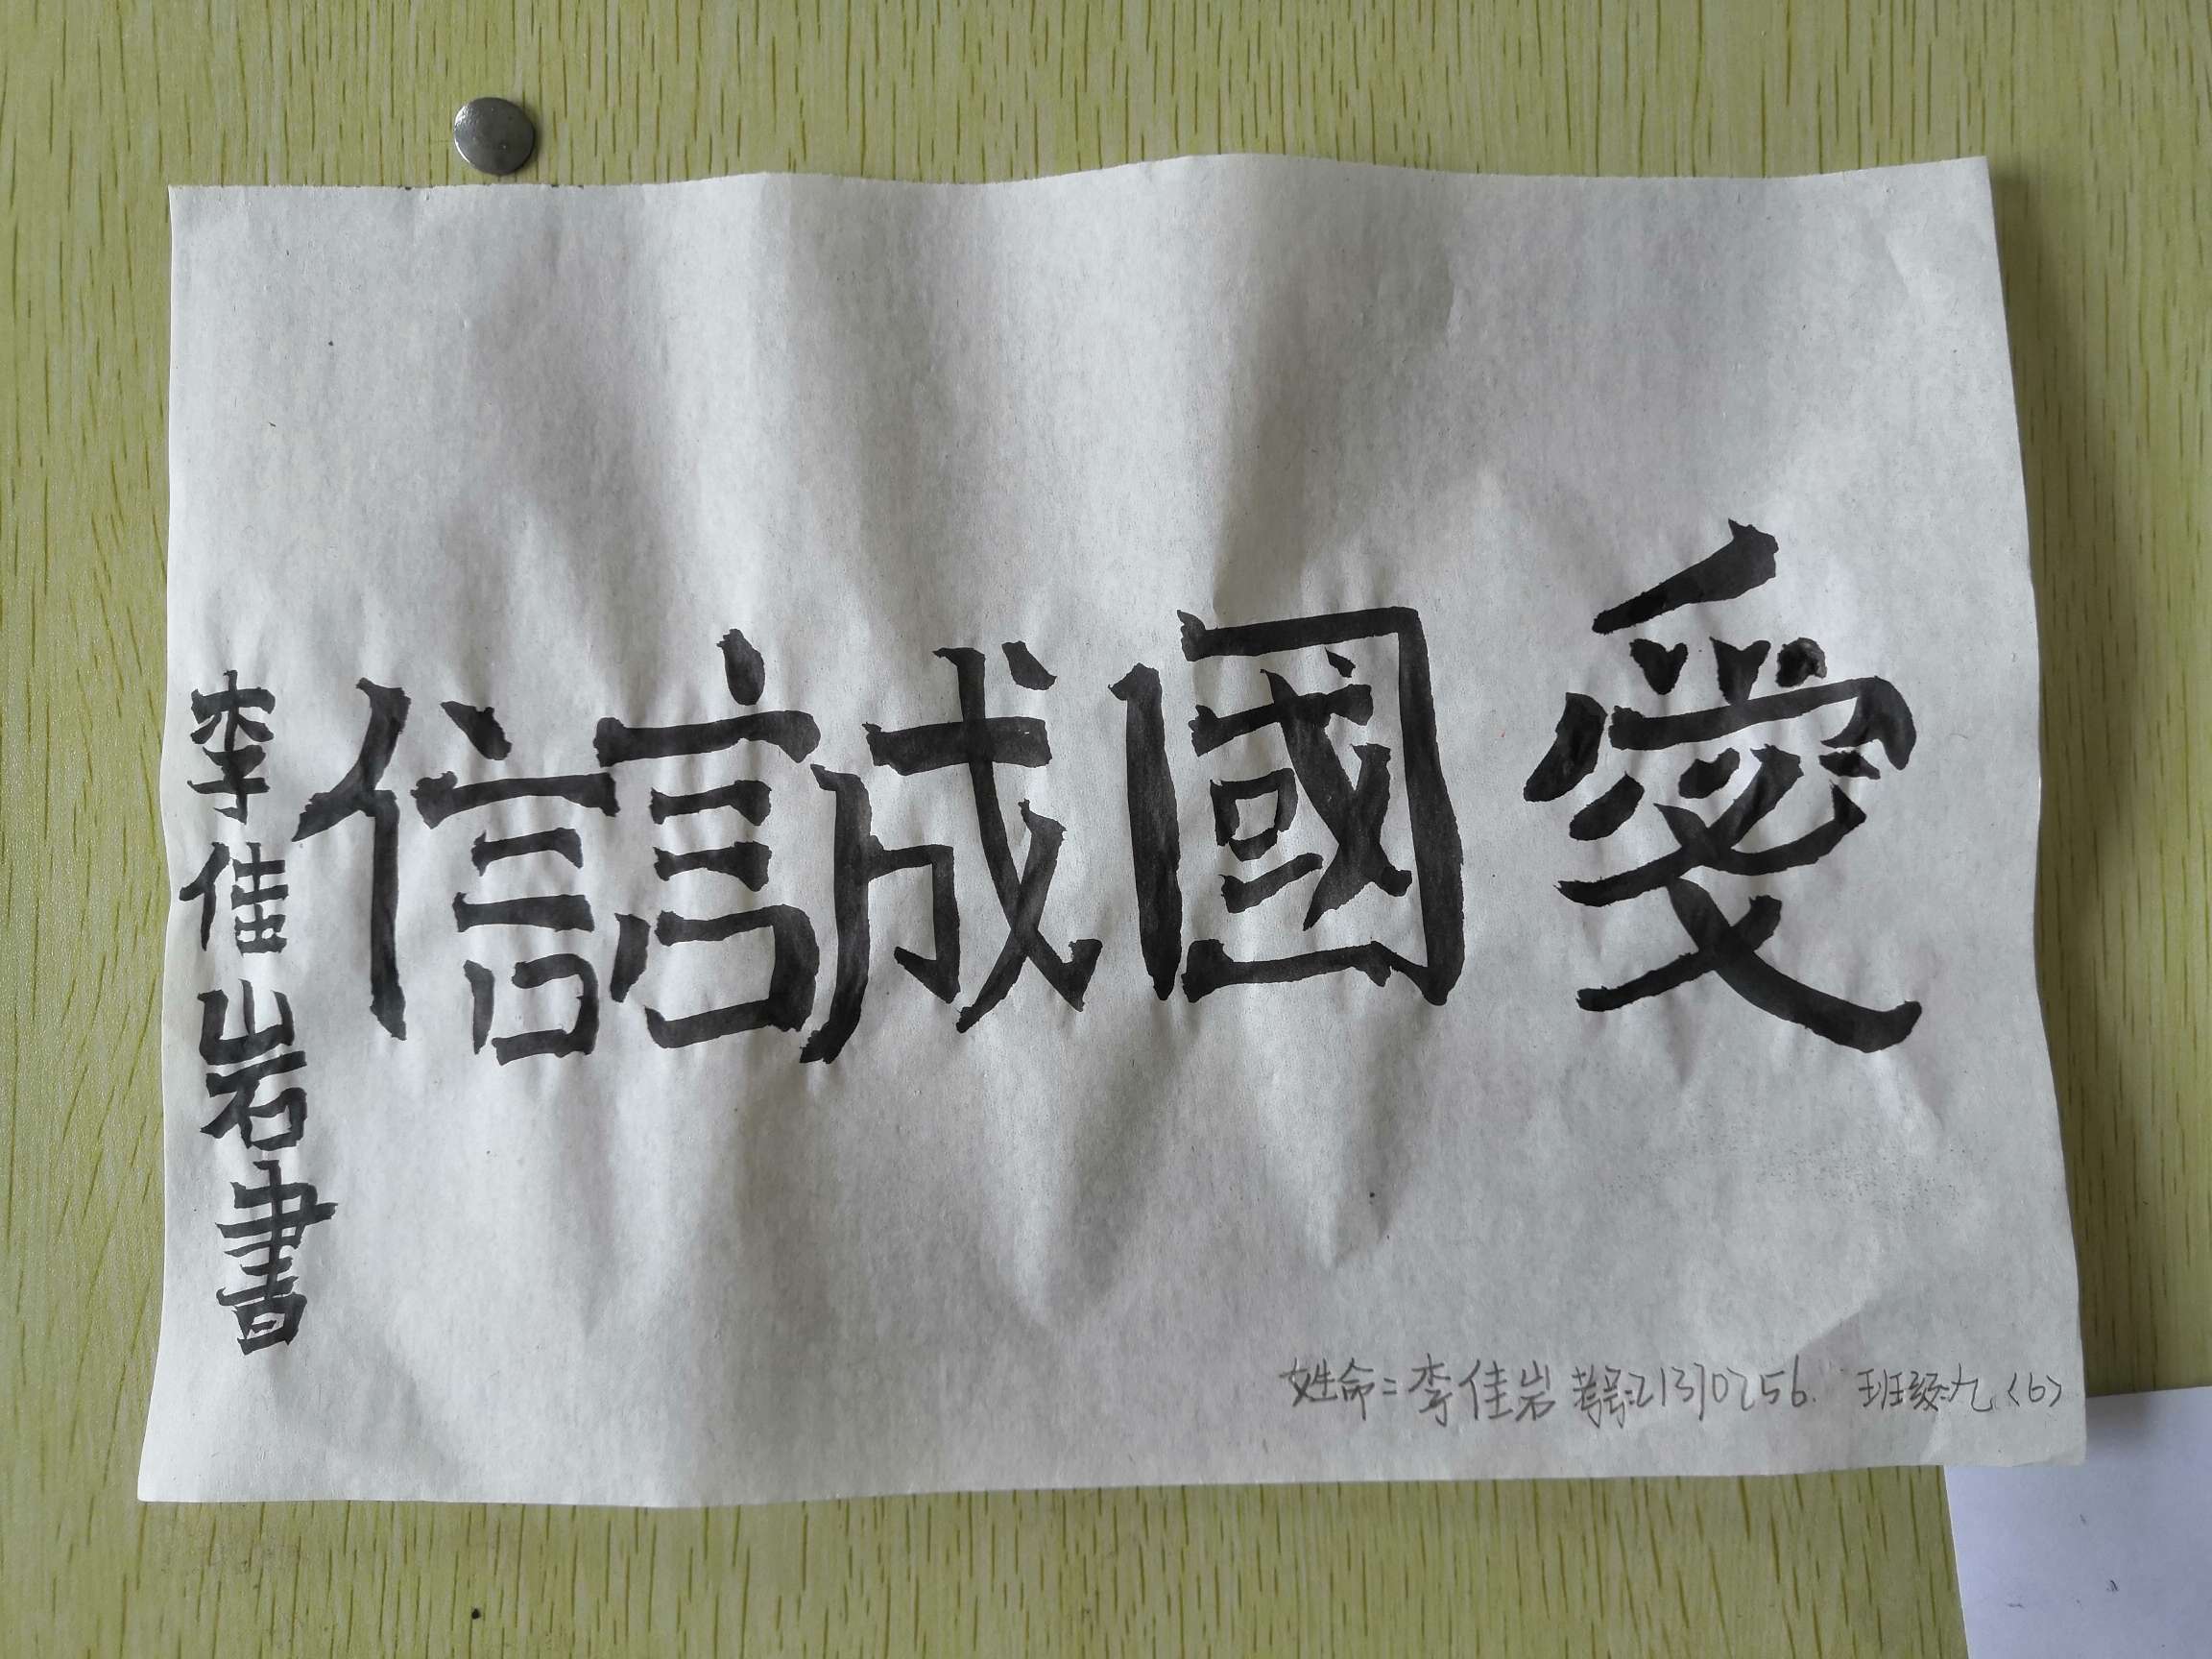 愛國誠信
李佳岩書
姓命：李佳岩 考号：21310256. 班级：九〈6〉